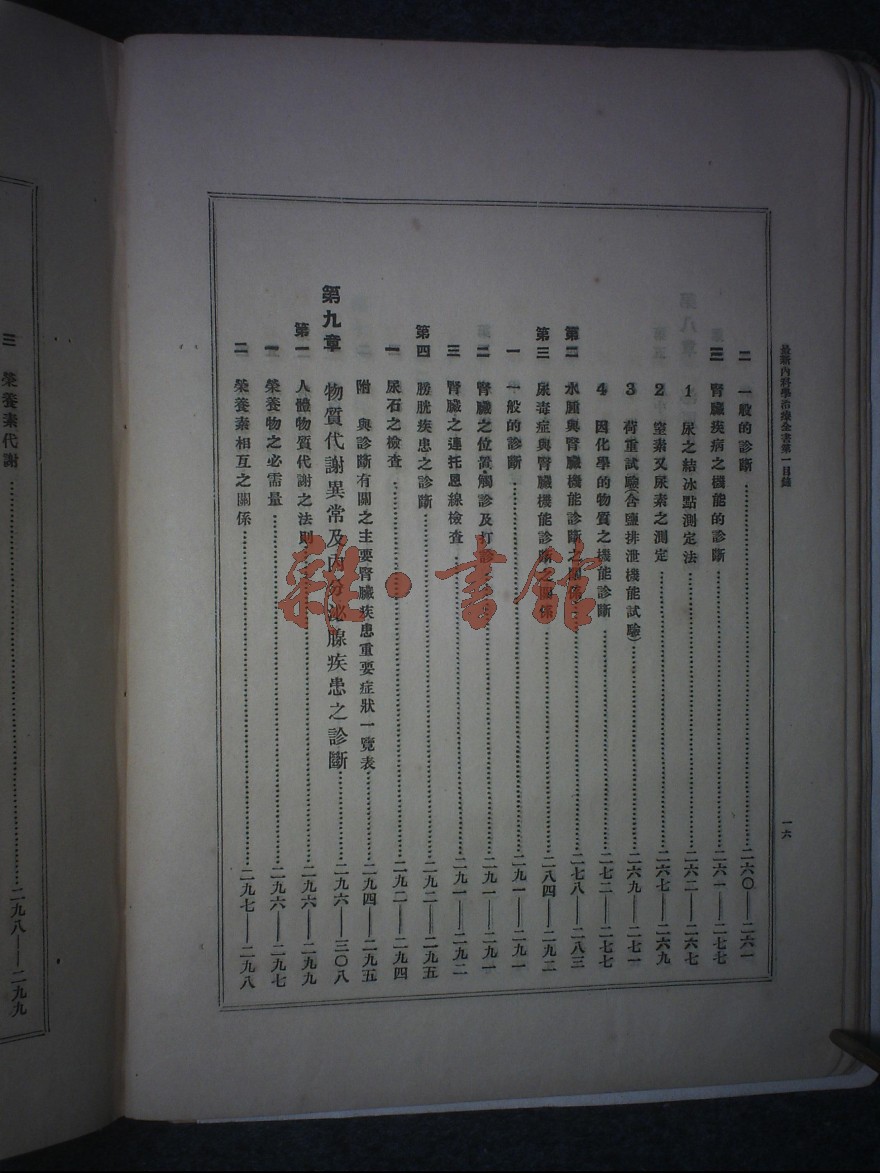 最新內科學治療全書第一目錄
一六
二 一般的診斷……二六〇——二六一
三 腎臟疾病之機能的診斷……二六一——二七七
1 尿之結冰點測定法……二六二——二六七
2 窒素又尿素之測定……二六七——二六九
3 荷重試驗(含鹽排泄機能試驗)……二六九——二七一
4 因化學的物質之機能診斷……二七二——二七七
第二 水腫與腎臟機能診斷之關係……二七八——二八三
第三 尿毒症與腎臟機能診斷之關係……二八四——二九二
一 一般的診斷……二九一——二九一
二 腎臟之位置・觸診及打診……二九一——二九一
三 腎臟之連托恩線檢查……二九一——二九二
第四 膀胱疾患之診斷……二九二——二九五
一 尿石之檢查……二九二——二九四
附 與診斷有關之主要腎臟疾患重要症狀一覽表……二九四——二九五
第九章 物質代謝異常及內分泌腺疾患之診斷……二九六——三〇八
第一 人體物質代謝之法則……二九六——二九九
一 榮養物之必需量……二九六——二九七
二 榮養素相互之關係……二九七——二九八
三 榮養素代謝……二九八——二九九
雜·書館